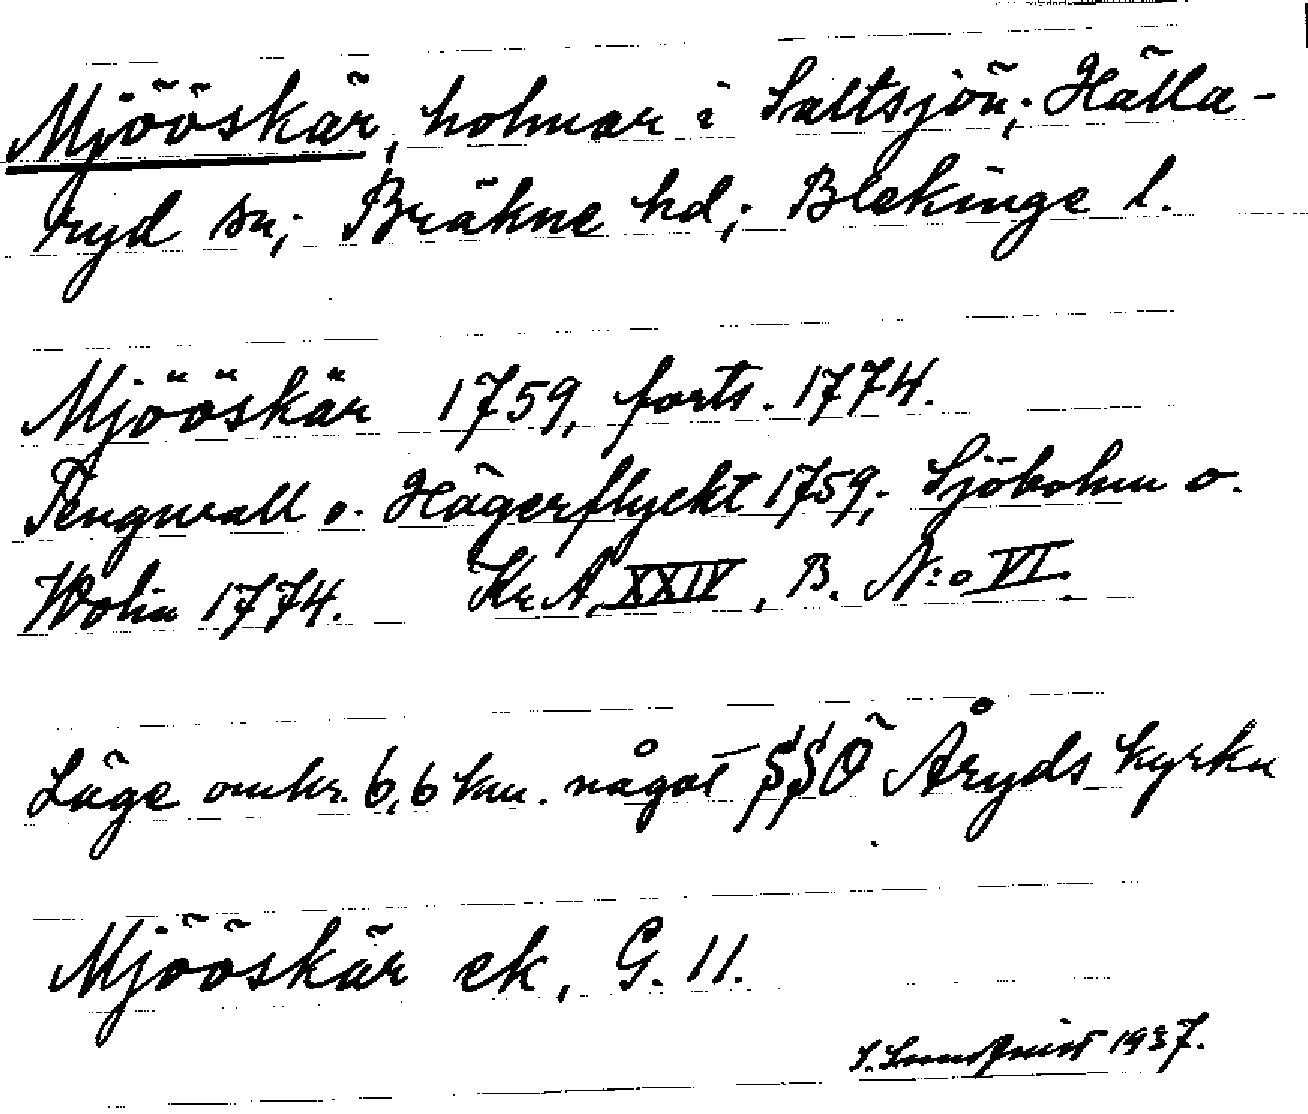 Mjööskär, holmar i Saltsjön; Hälla-
ryd sn; Bräkne hd; Blekinge l.
Mjööskär 1759, forts. 1774.
Tengwall o. Hägerflyckt 1759; Sjöbohm o.
Wolin 1774. Kr. A. XXIV, B. N:o VI.
Läge omkr. 6,6 km. något SSÖ Åryds kyrka
Mjööskär ek, G. 11.
S. Lundqvist 1937.